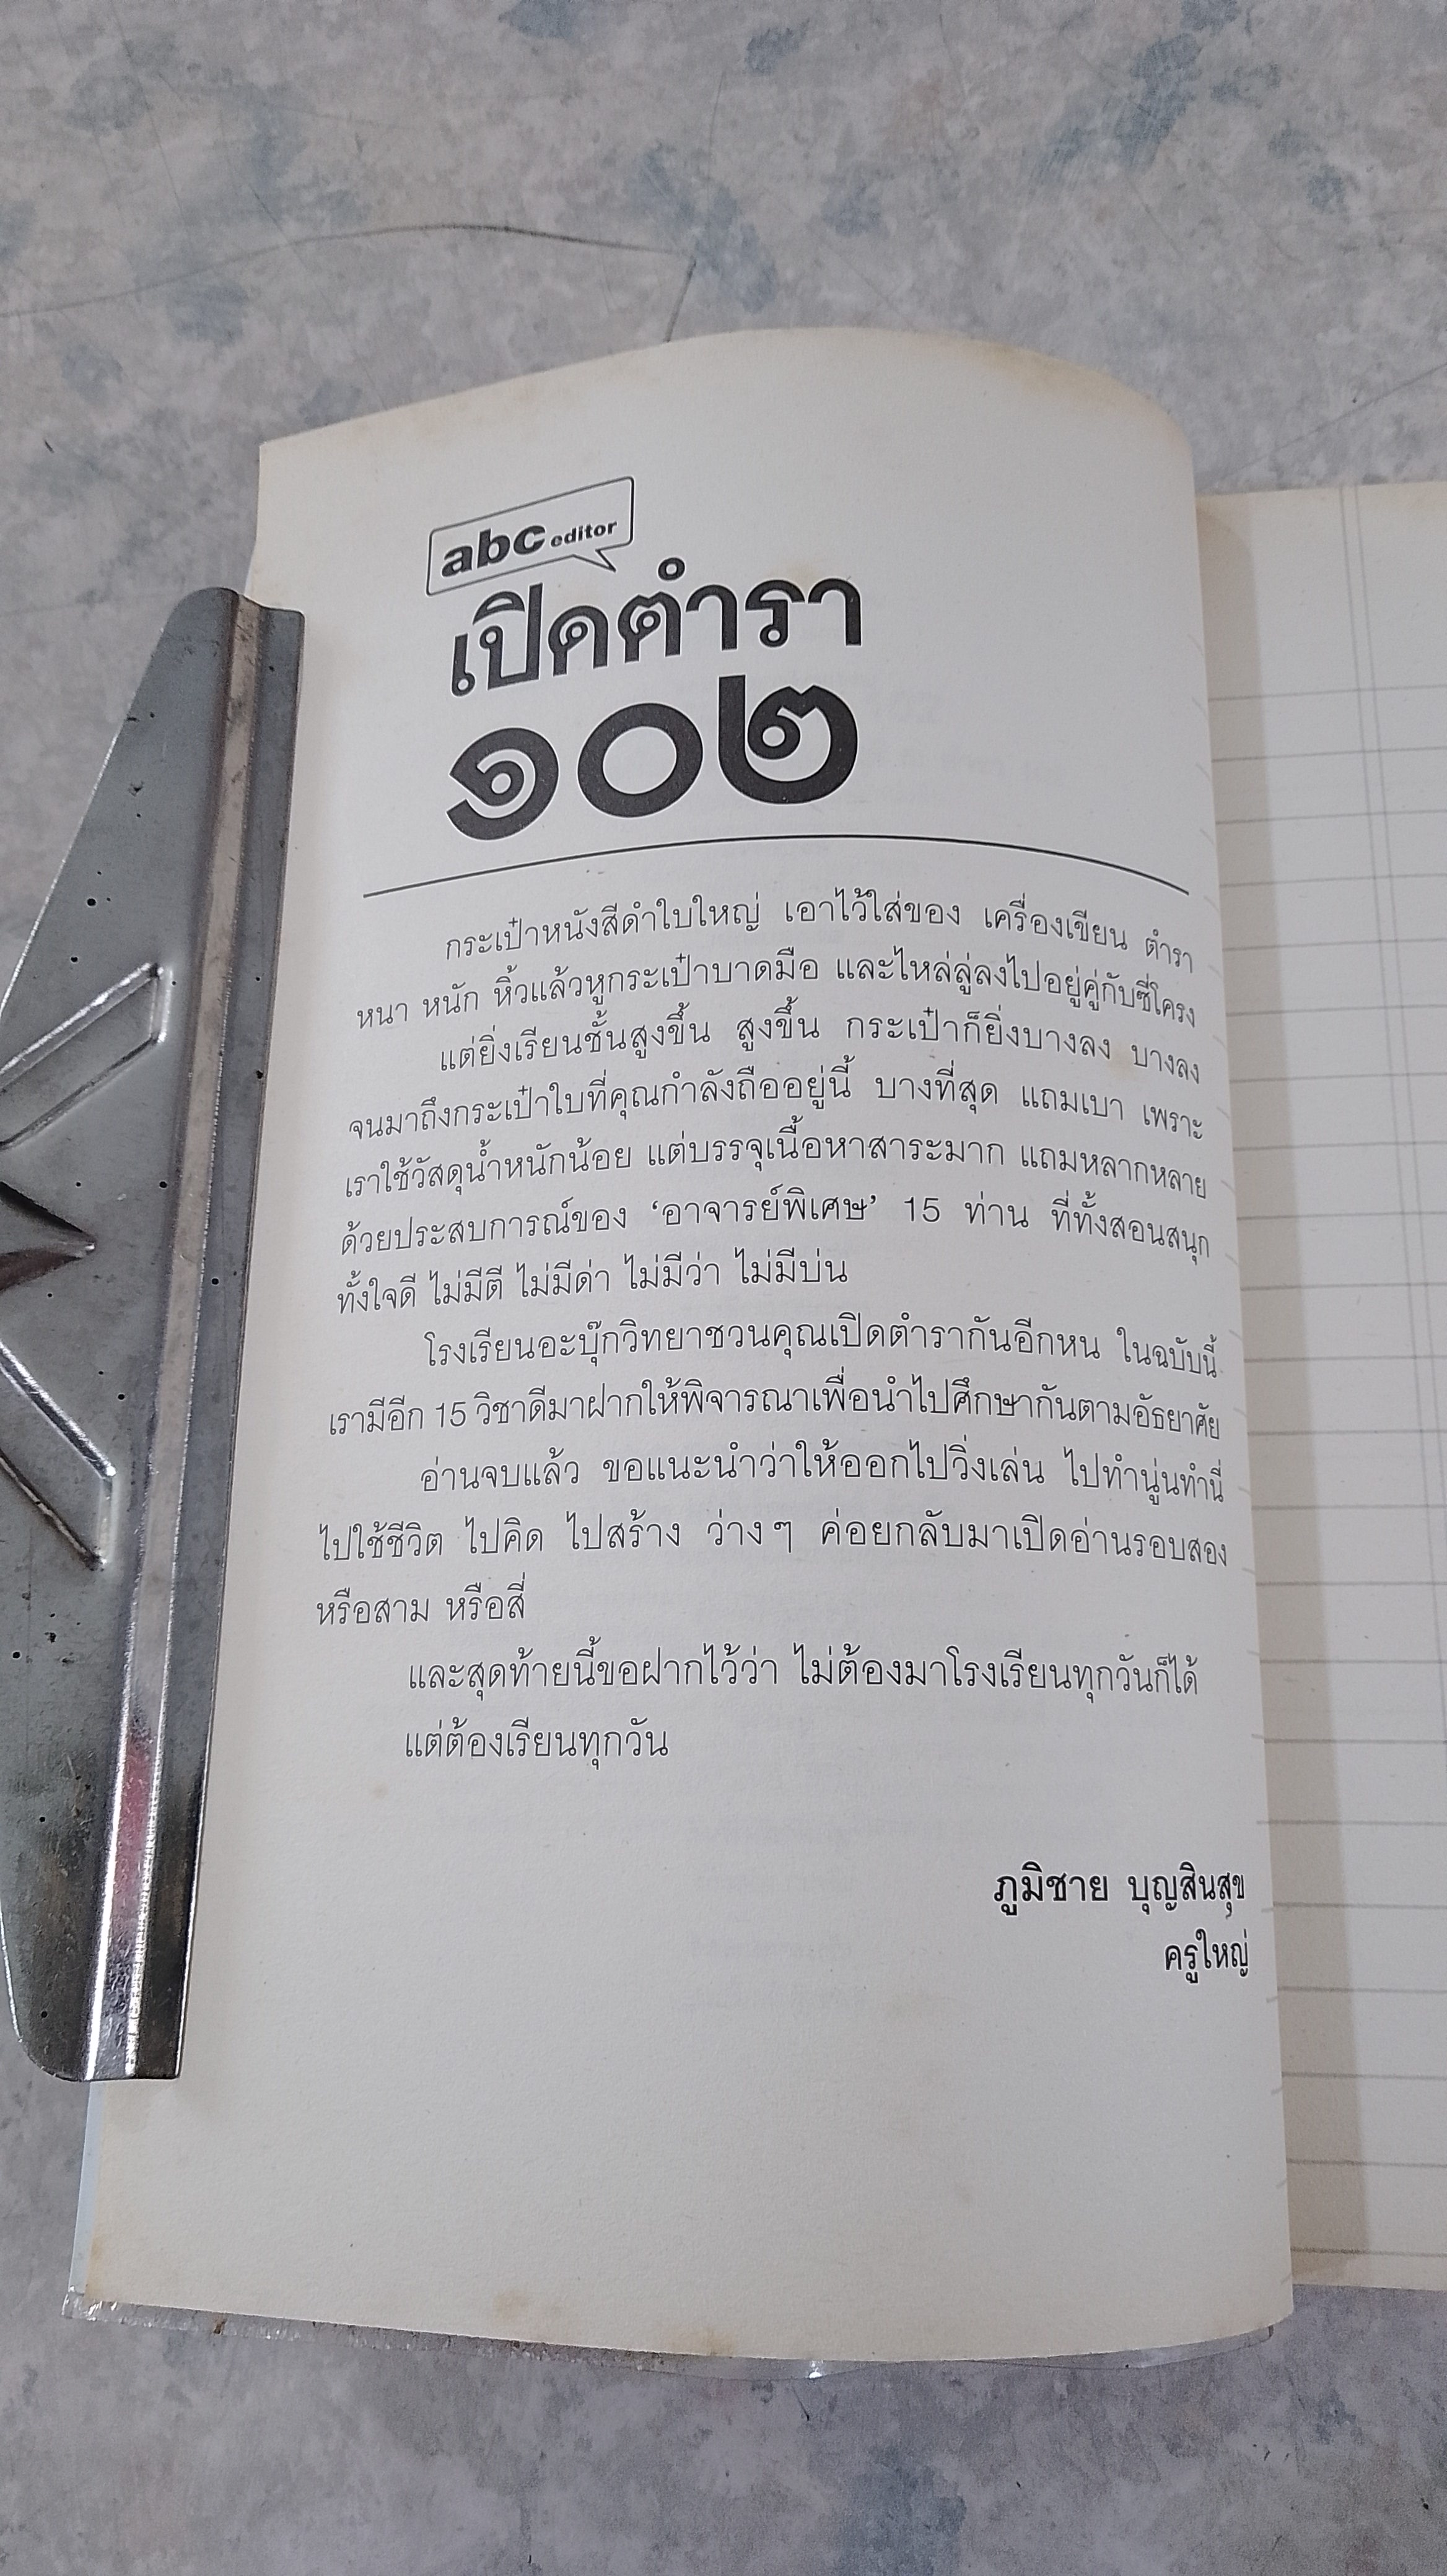 abc editor
เปิดตำรา
๑๐๒
กระเป๋าหนังสีดำใบใหญ่ เอาไว้ใส่ของ เครื่องเขียน ตำรา
หนา หนัก หิ้วแล้วหูกระเป๋าบาดมือ และไหล่ลู่ลงไปอยู่คู่กับซี่โครง
แต่ยิ่งเรียนชั้นสูงขึ้น สูงขึ้น กระเป๋าก็ยิ่งบางลง บางลง
จนมาถึงกระเป๋าใบที่คุณกำลังถืออยู่นี้ บางที่สุด แถมเบา เพราะ
เราใช้วัสดุน้ำหนักน้อย แต่บรรจุเนื้อหาสาระมาก แถมหลากหลาย
ด้วยประสบการณ์ของ ‘อาจารย์พิเศษ’ 15 ท่าน ที่ทั้งสอนสนุก
ทั้งใจดี ไม่มีตี ไม่มีด่า ไม่มีว่า ไม่มีบ่น
โรงเรียนอะบุ๊กวิทยาชวนคุณเปิดตำรากันอีกหน ในฉบับนี้
เรามีอีก 15 วิชาดีมาฝากให้พิจารณาเพื่อนำไปศึกษากันตามอัธยาศัย
อ่านจบแล้ว ขอแนะนำว่าให้ออกไปวิ่งเล่น ไปทำนู่นทำนี่
ไปใช้ชีวิต ไปคิด ไปสร้าง ว่างๆ ค่อยกลับมาเปิดอ่านรอบสอง
หรือสาม หรือสี่
และสุดท้ายนี้ขอฝากไว้ว่า ไม่ต้องมาโรงเรียนทุกวันก็ได้
แต่ต้องเรียนทุกวัน
ภูมิชาย บุญสินสุข
ครูใหญ่